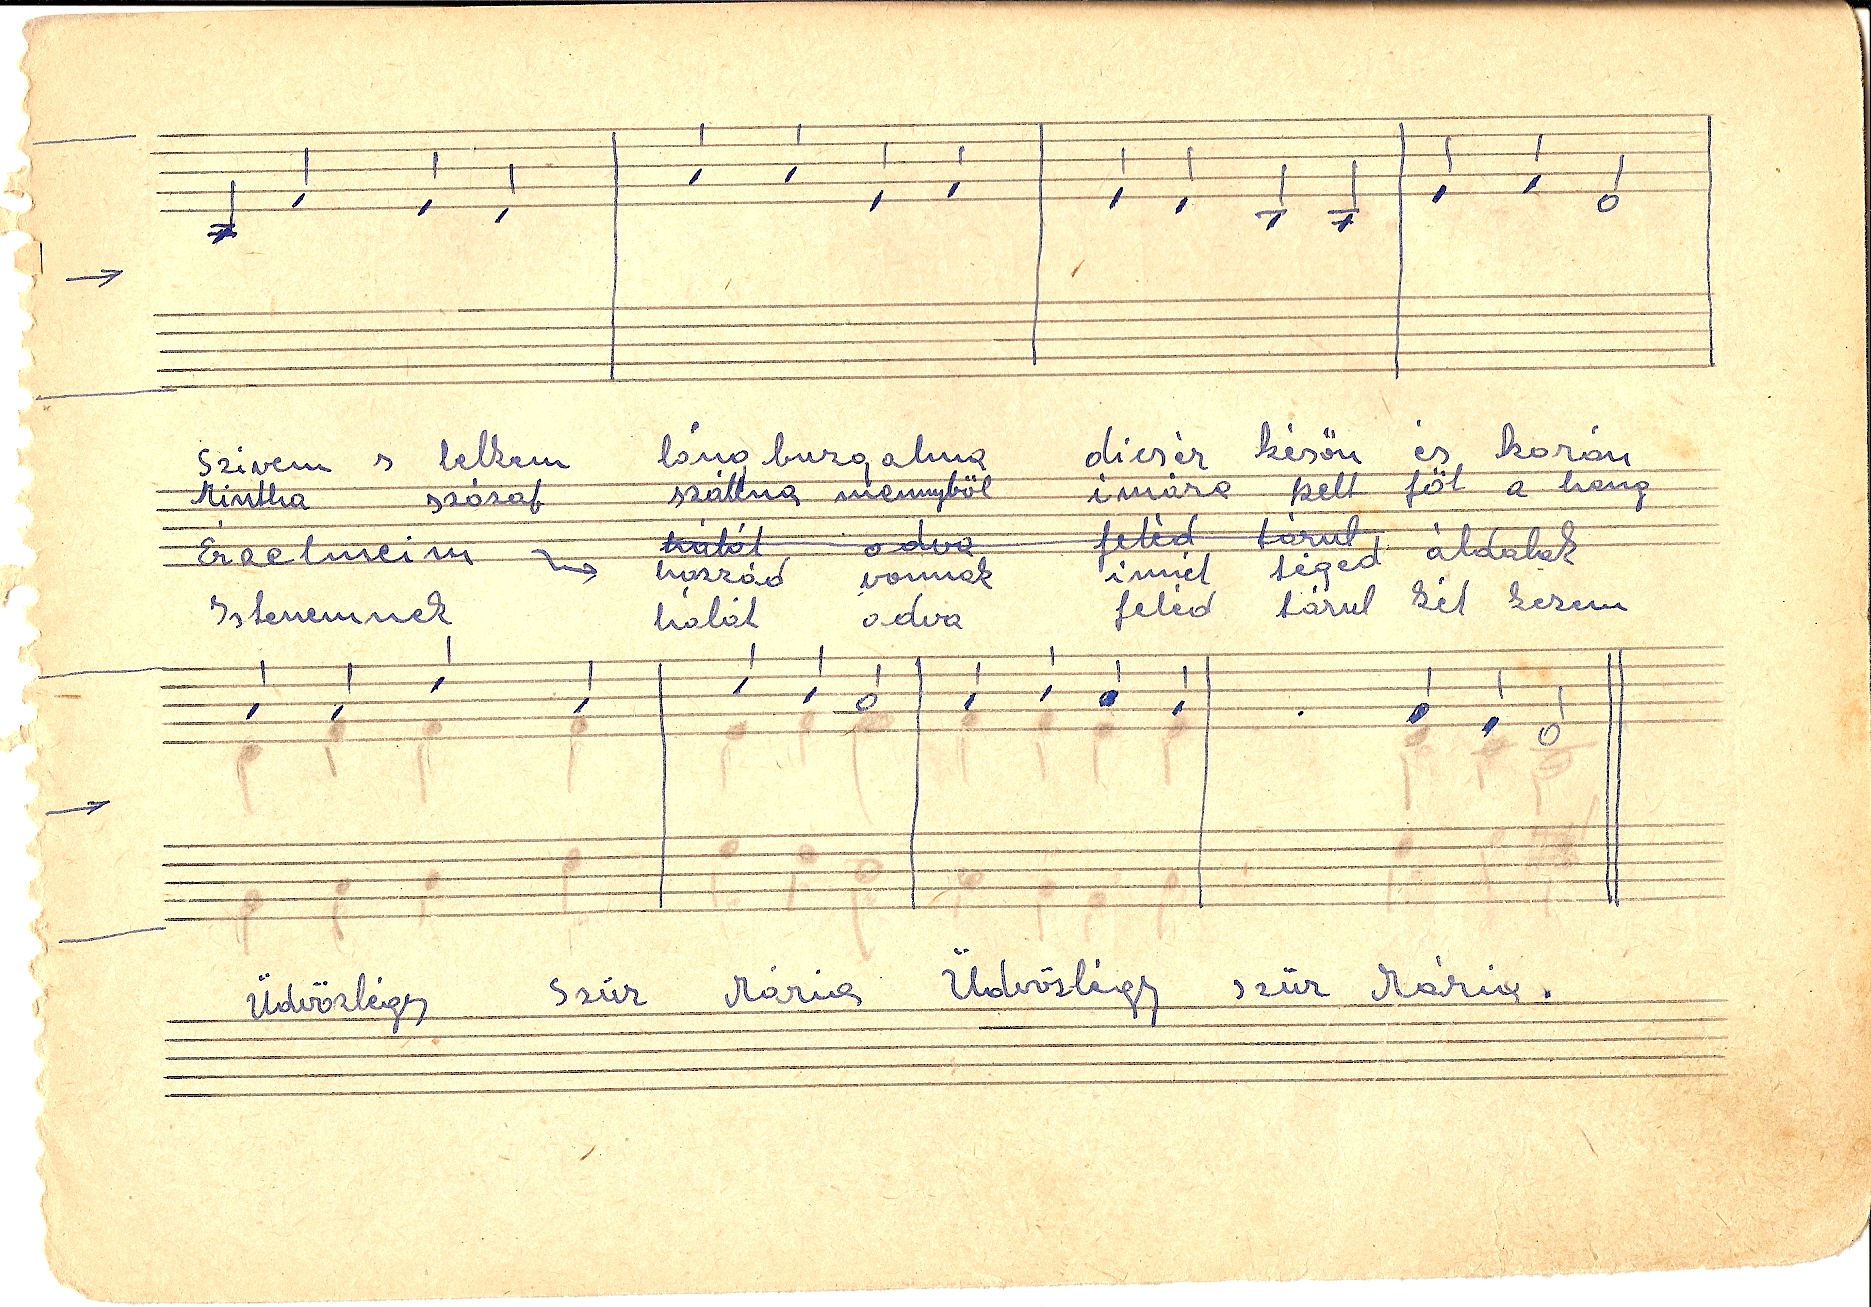 Szivem s lelkem láng buzgalma dicsér késön és korán
Mintha szózat szállna mennyböl imára kelt föl a hang
Érzelmeim hálát adva feléd tárul áldalak
hozzád vonnak imiel téged
Istenemnek hálát adva feléd tárul két kezem
Üdvözlégy szűz Mária Üdvözlégy szűz Mária.